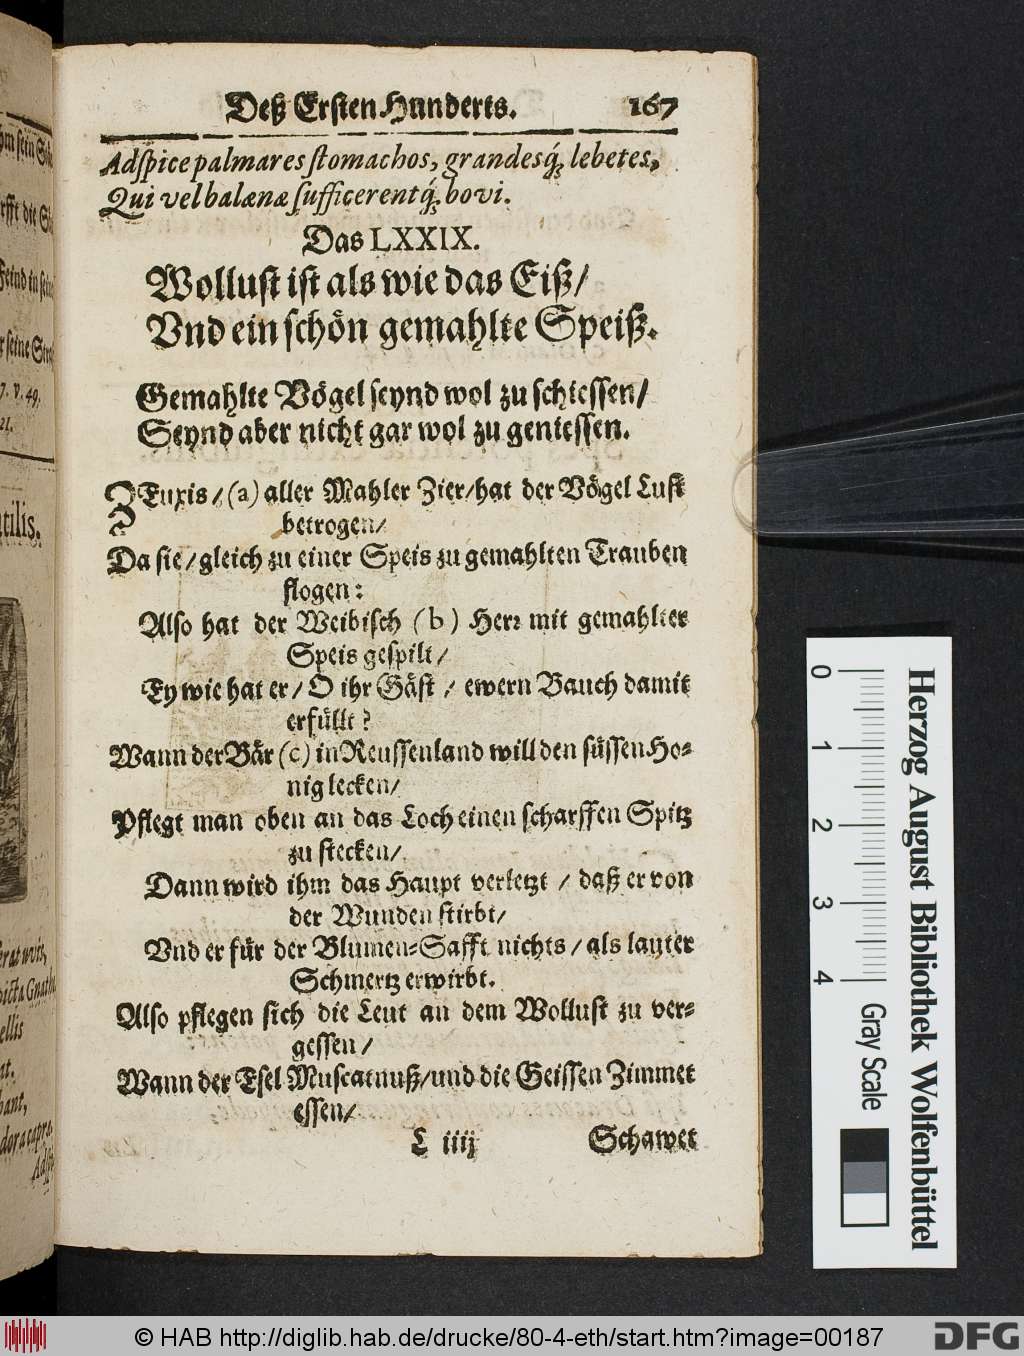 Deß Ersten Hunderts. 167
Adſpice palmares ſtomachos, grandesq́; lebetes,
Qui vel balænæ ſufficerentq́; bovi.
Das LXXIX.
Wolluſt iſt als wie das Eiß/
Vnd ein ſchön gemahlte Speiß.
Gemahlte Vögel ſeynd wol zu ſchieſſen/
Seynd aber nicht gar wol zu genieſſen.
ZEuxis/ (a) aller Mahler Zier/ hat der Vögel Luſt
betrogen/
Da ſie/ gleich zu einer Speis zu gemahlten Trauben
flogen:
Alſo hat der Weibiſch (b) Herr mit gemahlter
Speis geſpilt/
Ey wie hat er/ O ihr Gäſt/ ewern Bauch damit
erfüllt?
Wann der Bär (c) in Reuſſenland will den ſüſſen Ho⸗
nig lecken/
Pflegt man oben an das Loch einen ſcharffen Spitz
zu ſtecken/
Dann wird ihm das Haupt verletzt/ daß er von
der Wunden ſtirbt/
Vnd er für der Blumen⸗Safft nichts/ als lauter
Schmertz erwirbt.
Alſo pflegen ſich die Leut an dem Wolluſt zu ver⸗
geſſen/
Wann der Eſel Muſcatnuß/ und die Geiſſen Zimmet
eſſen/
L iiij Schawet
0 1 2 3 4
Herzog August Bibliothek Wolfenbüttel
Gray Scale
© HAB http://diglib.hab.de/drucke/80-4-eth/start.htm?image=00187
DFG